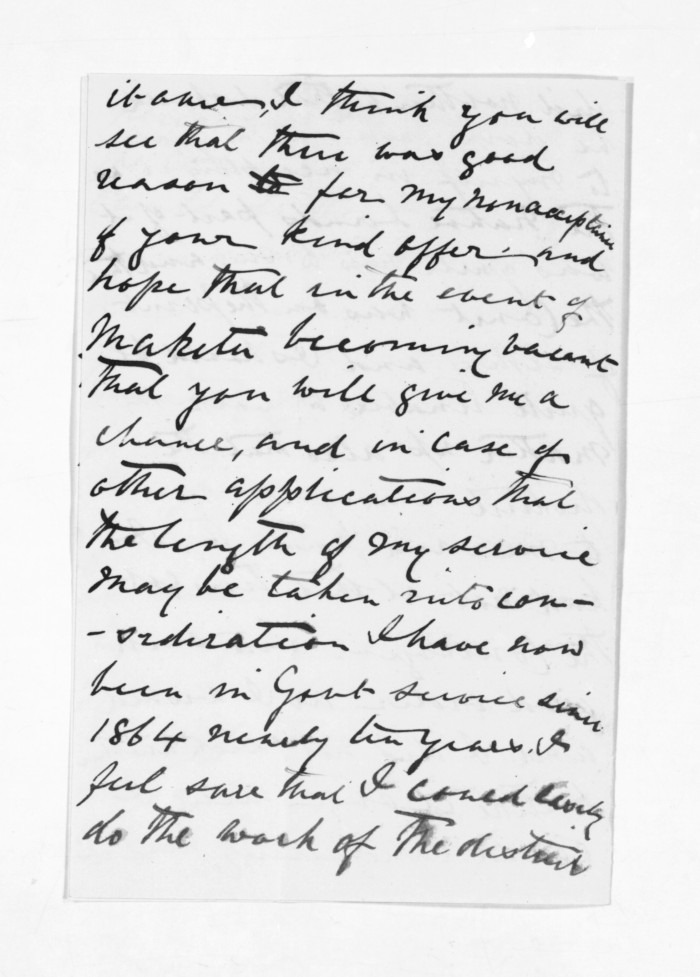 it over, I think you will
see that there was good
reason for my nonacceptance
of your kind offer and
hope that in the event of
Maketu becoming vacant
that you will give me a
chance, and in case of
other applications that
the length of my service
may be taken into con-
-sideration I have now
been in Govt service since
1864 nearly ten years. I
feel sure that I could easily
do the work of the district